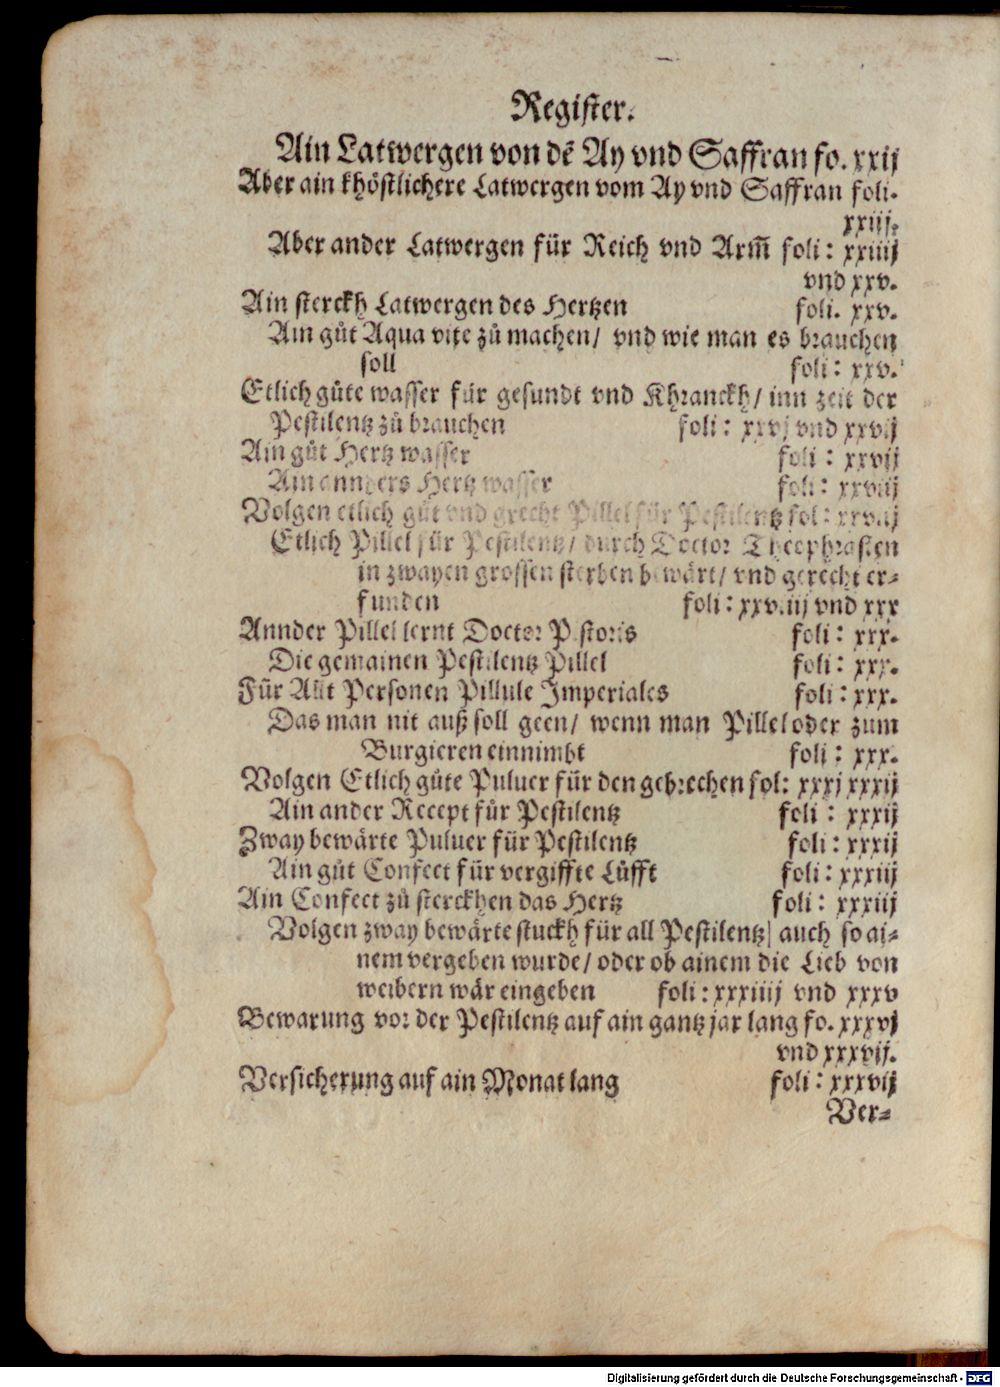 Register.
Ain Latwergen von dē Ay vnd Saffran fo. xxij
Aber ain khöstlichere Latwergen vom Ay vnd Saffran foli.
xxiij.
Aber ander Latwergen für Reich vnd Arm̄ foli: xxiiij
vnd xxv.
Ain sterckh Latwergen des Hertzen foli. xxv.
Ain gůt Aqua vite zů machen/ vnd wie man es brauchen
soll foli: xxv.
Etlich gůte wasser für gesundt vnd Khranckh/ inn zeit der
Pestilentz zů brauchen foli: xxvj vnd xxvij
Ain gůt Hertz wasser foli: xxvij
Ain annders Hertz wasser foli: xxviij
Volgen etlich gůt vnd grecht Pillel für Pestilentz fol: xxviij
Etlich Pillel für Pestilentz/ durch Doctor Theophrasten
in zwayen grossen sterben bewärt/ vnd gerecht er⸗
funden foli: xxviiij vnd xxx
Annder Pillel lernt Doctor Pistoris foli: xxx.
Die gemainen Pestilentz Pillel foli: xxx.
Für Allt Personen Pillule Imperiales foli: xxx.
Das man nit auß soll geen/ wenn man Pillel oder zum
Burgieren einnimbt foli: xxx.
Volgen Etlich gůte Puluer für den gebrechen fol: xxxj xxxij
Ain ander Recept für Pestilentz foli: xxxij
Zway bewärte Puluer für Pestilentz foli: xxxij
Ain gůt Confect für vergiffte Lüfft foli: xxxiij
Ain Confect zů sterckhen das Hertz foli: xxxiij
Volgen zway bewärte stuckh für all Pestilentz/ auch so ai⸗
nem vergeben wurde/ oder ob ainem die Lieb von
weibern wär eingeben foli: xxxiiij vnd xxxv
Bewarung vor der Pestilentz auf ain gantz jar lang fo. xxxvj
vnd xxxvij.
Versicherung auf ain Monat lang foli: xxxvij
Ver⸗
Digitalisierung gefördert durch die Deutsche Forschungsgemeinschaft - DFG